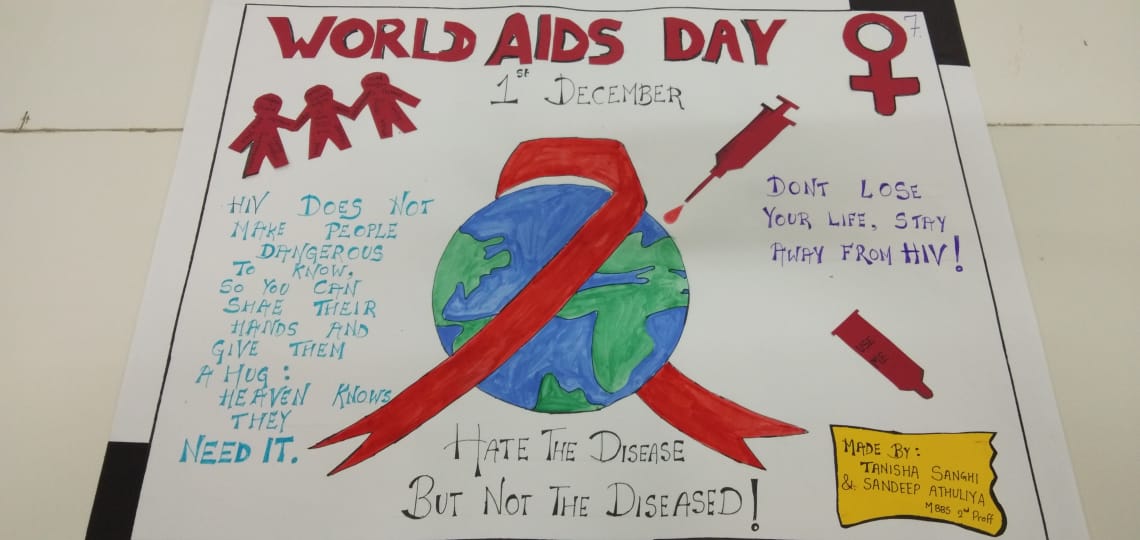 WORLD AIDS DAY
7.
1st DECEMBER
HIV DOES NOT
MAKE PEOPLE
DANGEROUS
TO KNOW,
SO YOU CAN
SHAE THEIR
HANDS AND
GIVE THEM
A HUG :
HEAVEN KNOWS
THEY
NEED IT.
DONT LOSE
YOUR LIFE, STAY
AWAY FROM HIV!
HATE THE DISEASE
BUT NOT THE DISEASED!
MADE BY:
TANISHA SANGHI
& SANDEEP ATHULIYA
MBBS 2nd Proff